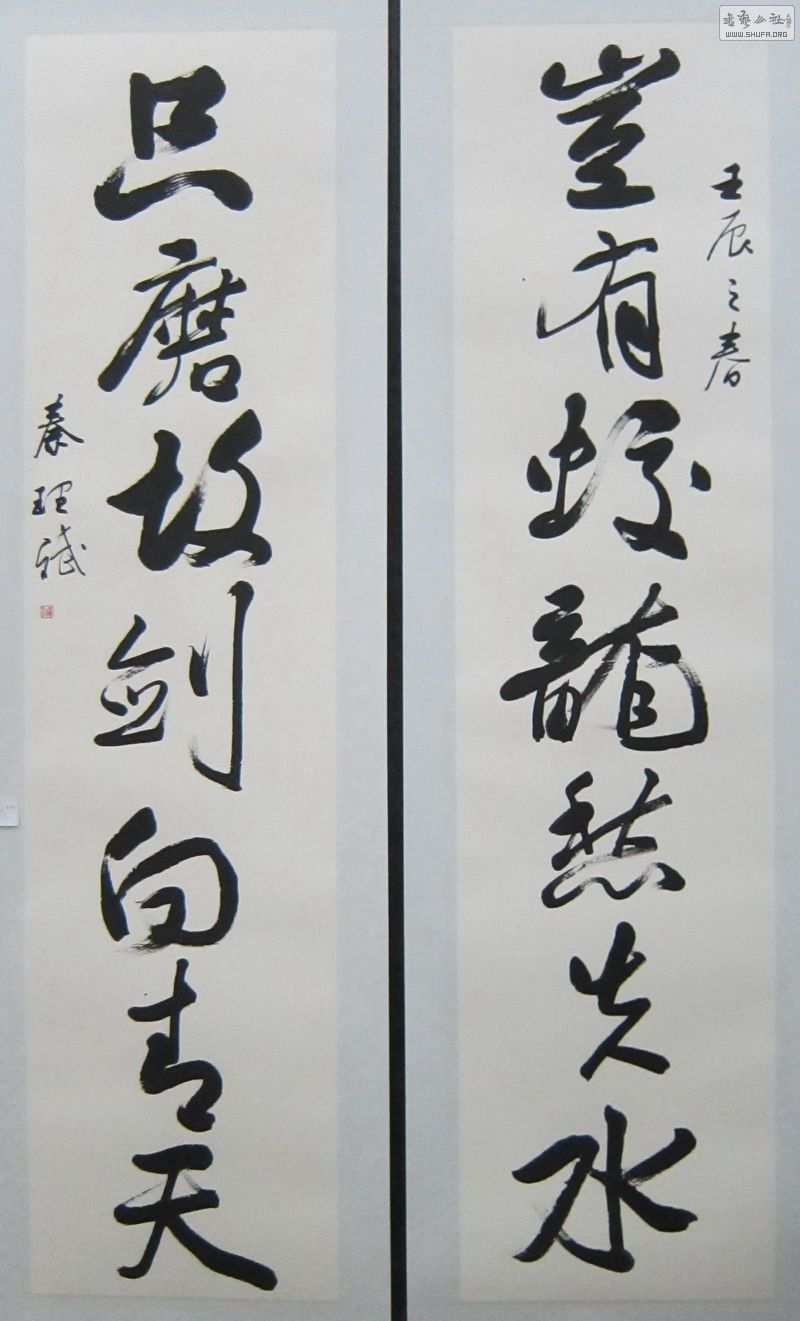 壬辰之春
豈有蛟龍愁失水
只磨故剑向青天
秦理斌
書藝公社
WWW.SHUFA.ORG